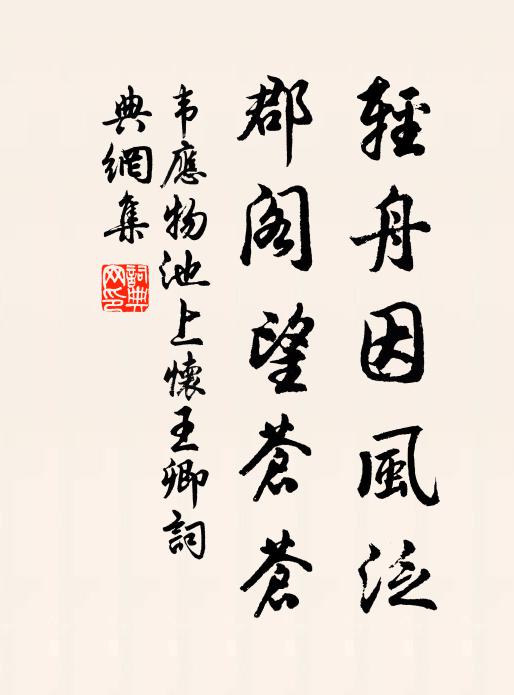 輕舟因風泛
郡閣望蒼蒼
韦應物池上懷王卿詞
典網集
詞典
网印